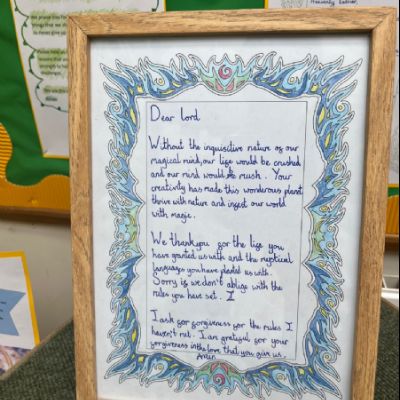 Heavenly Father,
Dear Lord
Without the inquisitive nature of our
magical mind, our life would be crushed
and our mind would be mush. Your
creativity has made this wonderous planet
thrive with nature and ingest our world
with magic.
We thankyou for the life you
have granted us with and the mystical
languages you have planted us with.
Sorry if we don't oblige with the
rules you have set. I
I ask for forgiveness for the rules I
haven't met. I am grateful for your
forgiveness in the love that you give us.
Amen